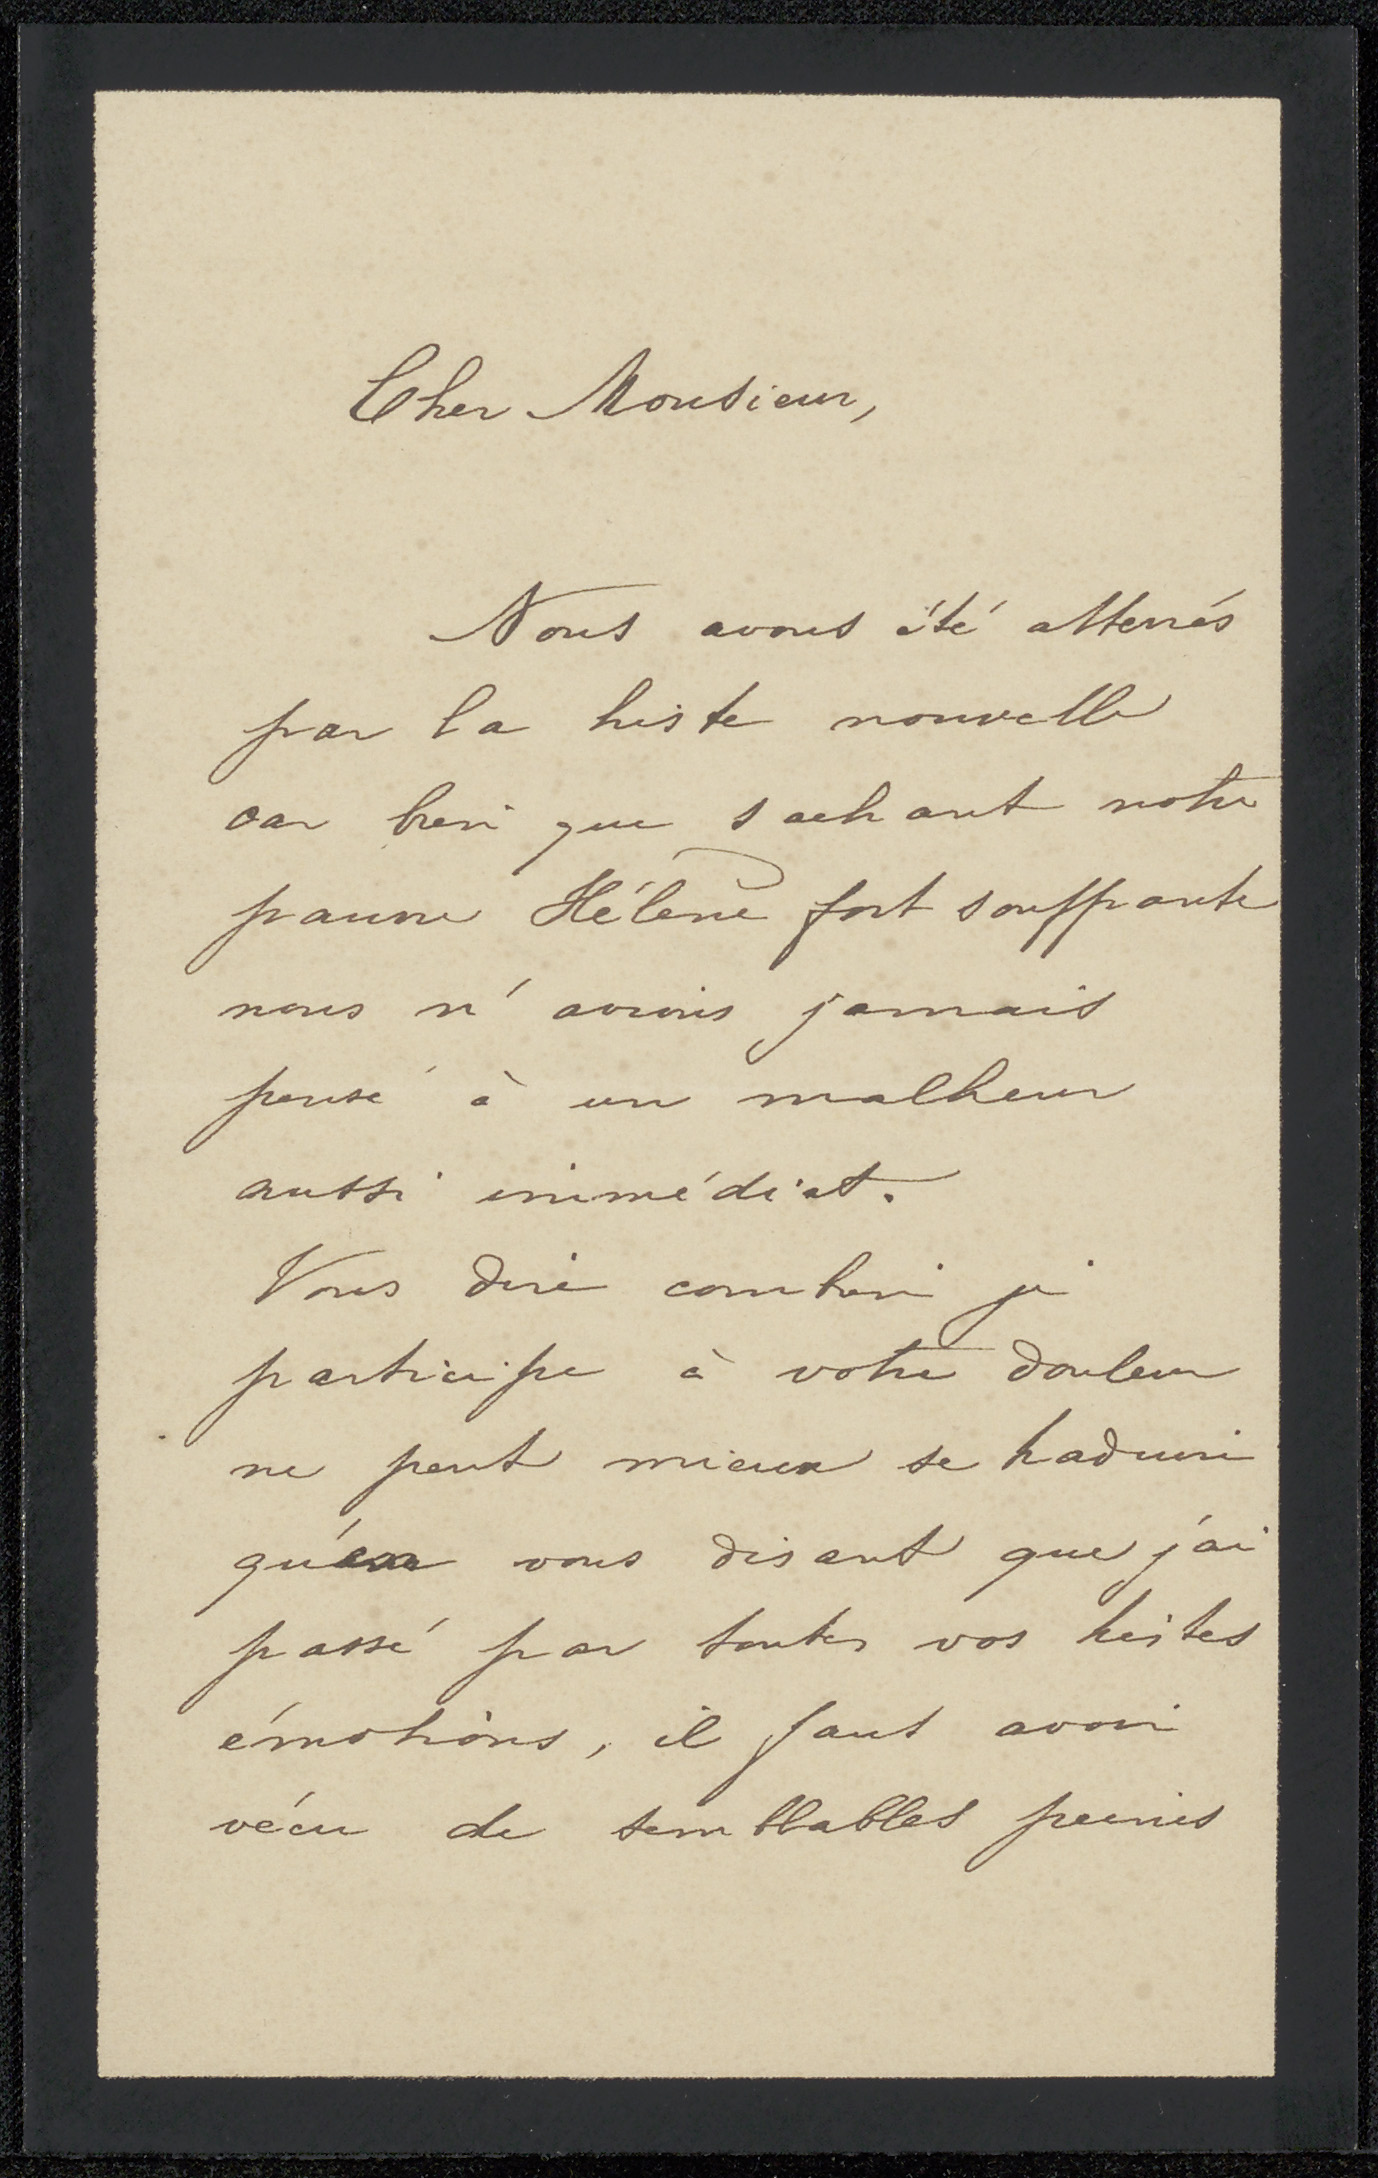 Cher Monsieur,
Nous avons été atterrés
par la triste nouvelle
car bien que sachant notre
pauvre Hélène fort souffrante
nous n'avions jamais
pensé à un malheur
aussi immédiat.
Vous dire combien je
participe à votre douleur
ne peut mieux se traduire
qu'en vous disant que j'ai
passé par toutes vos tristes
émotions, il faut avoir
vécu de semblables peines